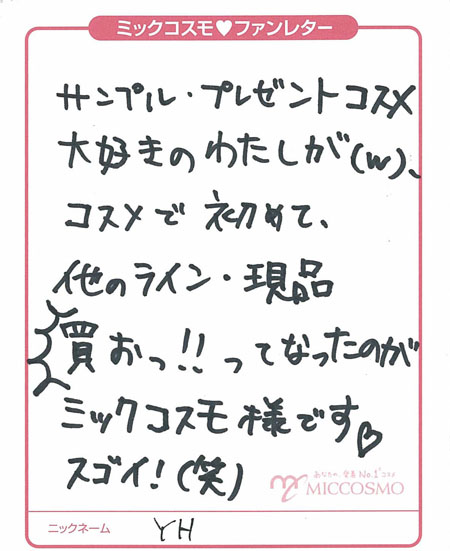 ミックコスモ♥ファンレター
サンプル・プレゼントコスメ
大好きのわたしが(w)、
コスメで初めて、
他のライン・現品
買おっ!!ってなったのが
ミックコスモ様です♡
スゴイ!(笑)
あなたの、全員No.1コスメ
MICCOSMO
ニックネーム YH